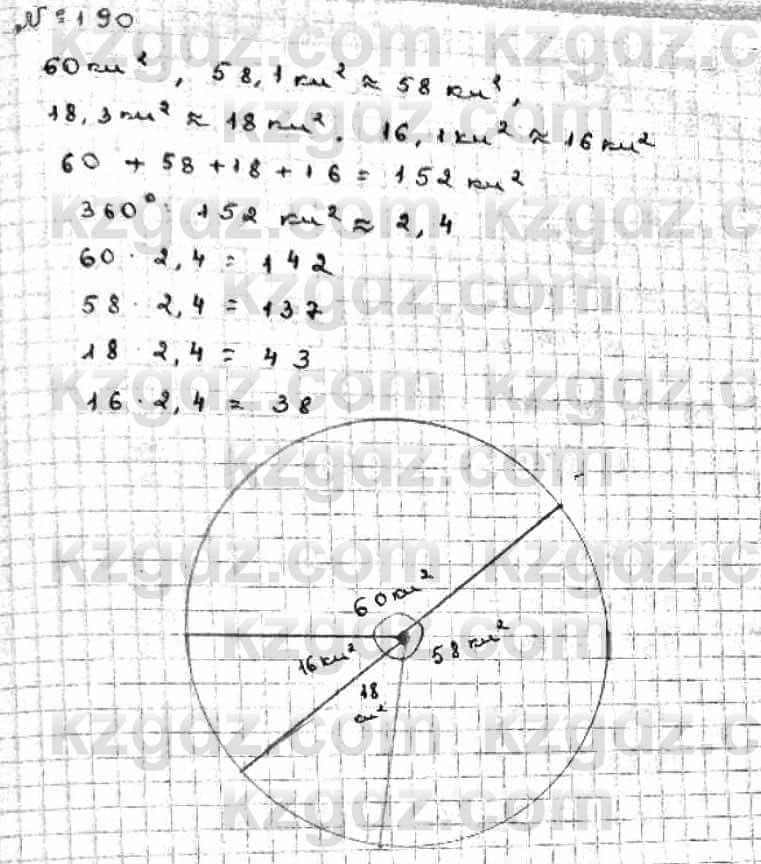 №190
60 км², 58,1 км² ≈ 58 км²,
18,3 км² ≈ 18 км². 16,1 км² ≈ 16 км²
60 + 58 + 18 + 16 = 152 км²
360° : 152 км² ≈ 2,4
60 · 2,4 = 142
58 · 2,4 = 137
18 · 2,4 = 43
16 · 2,4 = 38
60 км²
58 км²
16 км²
18
км²
kzgdz.com